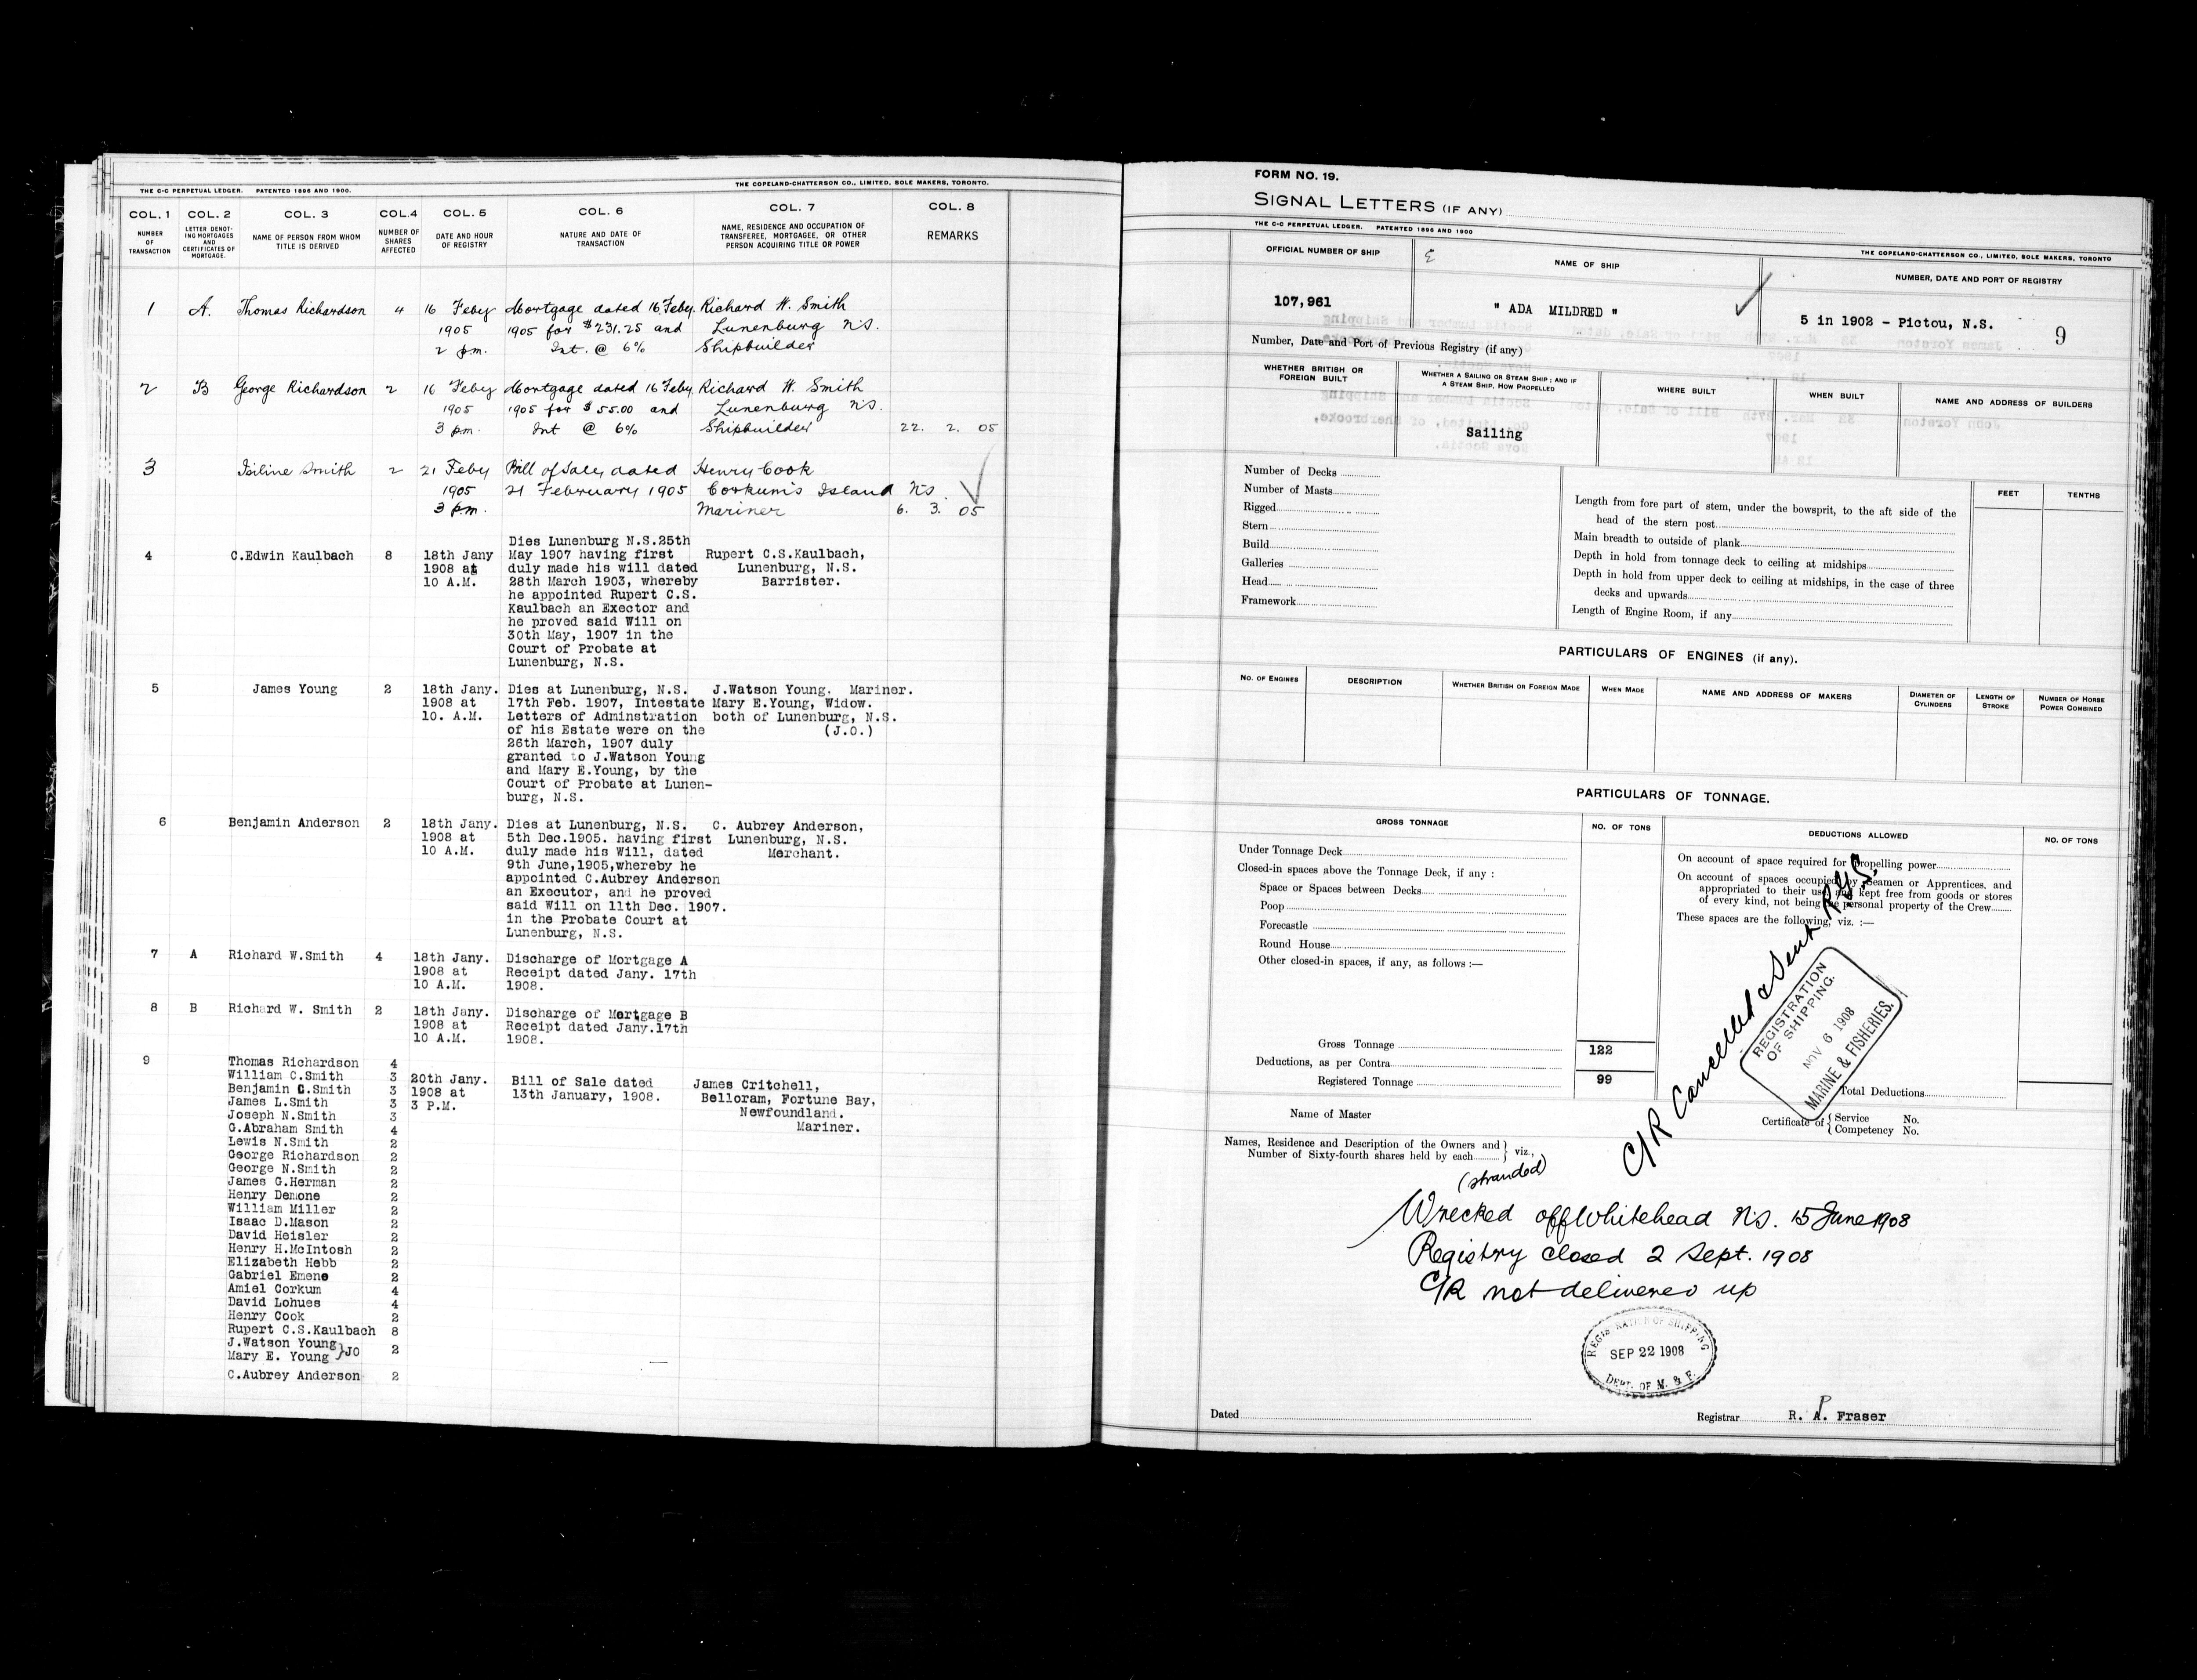 THE C-C PERPETUAL LEDGER. PATENTED 1896 AND 1900.
THE COPELAND-CHATTERSON CO., LIMITED, SOLE MAKERS, TORONTO.
COL. 1 COL. 2 COL. 3 COL. 4 COL. 5 COL. 6 COL. 7 COL. 8
NUMBER OF TRANSACTION
LETTER DENOTING MORTGAGES AND CERTIFICATES OF MORTGAGE.
NAME OF PERSON FROM WHOM TITLE IS DERIVED
NUMBER OF SHARES AFFECTED
DATE AND HOUR OF REGISTRY
NATURE AND DATE OF TRANSACTION
NAME, RESIDENCE AND OCCUPATION OF TRANSFEREE, MORTGAGEE, OR OTHER PERSON ACQUIRING TITLE OR POWER
REMARKS
1 A. Thomas Richardson 4 16 Feby Mortgage dated 16 Feby. Richard W. Smith
1905 1905 for $231.25 and Lunenburg N.S.
2 pm. Int. @ 6% Shipbuilder
2 B George Richardson 2 16 Feby Mortgage dated 16 Feby. Richard W. Smith
1905 1905 for $55.00 and Lunenburg N.S.
3 pm. Int @ 6% Shipbuilder 22. 2. 05
3 Smith 2 21 Feby Bill of Sale dated Henry Cook
1905 21 February 1905 Corkum's Island N.S.
3 p.m. Mariner 6. 3. 05
Dies Lunenburg N.S.25th
4 C.Edwin Kaulbach 8 18th Jany May 1907 having first Rupert C.S.Kaulbach,
1908 at duly made his will dated Lunenburg, N.S.
10 A.M. 28th March 1903, whereby Barrister.
he appointed Rupert C.S.
Kaulbach an Exector and
he proved said Will on
30th May, 1907 in the
Court of Probate at
Lunenburg, N.S.
5 James Young 2 18th Jany. Dies at Lunenburg, N.S. J.Watson Young. Mariner.
1908 at 17th Feb. 1907, Intestate Mary E.Young, Widow.
10. A.M. Letters of Adminstration both of Lunenburg, N.S.
of his Estate were on the (J.O.)
26th March, 1907 duly
granted to J.Watson Young
and Mary E.Young, by the
Court of Probate at Lunen-
burg, N.S.
6 Benjamin Anderson 2 18th Jany. Dies at Lunenburg, N.S. C. Aubrey Anderson,
1908 at 5th Dec.1905. having first Lunenburg, N.S.
10 A.M. duly made his Will, dated Merchant.
9th June,1905,whereby he
appointed C.Aubrey Anderson
an Executor, and he proved
said Will on 11th Dec. 1907.
in the Probate Court at
Lunenburg, N.S.
7 A Richard W.Smith 4 18th Jany. Discharge of Mortgage A
1908 at Receipt dated Jany. 17th
10 A.M. 1908.
8 B Richard W. Smith 2 18th Jany. Discharge of Mortgage B
1908 at Receipt dated Jany.17th
10 A.M. 1908.
9 Thomas Richardson 4
William C.Smith 3 20th Jany. Bill of Sale dated James Critchell,
Benjamin C.Smith 3 1908 at 13th January, 1908. Belloram, Fortune Bay,
James L.Smith 3 3 P.M. Newfoundland.
Joseph N.Smith 3 Mariner.
G.Abraham Smith 4
Lewis N.Smith 2
George Richardson 2
George N.Smith 2
James G.Herman 2
Henry Demone 2
William Miller 2
Isaac D.Mason 2
David Heisler 2
Henry H.McIntosh 2
Elizabeth Hebb 2
Gabriel Emene 2
Amiel Corkum 4
David Lohues 4
Henry Cook 2
Rupert C.S.Kaulbach 8
J.Watson Young
Mary E. Young }JO 2
C.Aubrey Anderson 2
FORM NO. 19.
SIGNAL LETTERS (IF ANY)
THE C-C PERPETUAL LEDGER. PATENTED 1896 AND 1900
THE COPELAND-CHATTERSON CO., LIMITED, SOLE MAKERS, TORONTO
OFFICIAL NUMBER OF SHIP NAME OF SHIP NUMBER, DATE AND PORT OF REGISTRY
107,961 " ADA MILDRED " 5 in 1902 - Pictou, N.S. 9
Number, Date and Port of Previous Registry (if any)
WHETHER BRITISH OR FOREIGN BUILT
WHETHER A SAILING OR STEAM SHIP; AND IF A STEAM SHIP, HOW PROPELLED
WHERE BUILT
WHEN BUILT
NAME AND ADDRESS OF BUILDERS
Sailing
Number of Decks
Number of Masts
Rigged
Stern
Build
Galleries
Head
Framework
FEET TENTHS
Length from fore part of stem, under the bowsprit, to the aft side of the
head of the stern post
Main breadth to outside of plank
Depth in hold from tonnage deck to ceiling at midships
Depth in hold from upper deck to ceiling at midships, in the case of three
decks and upwards
Length of Engine Room, if any
PARTICULARS OF ENGINES (if any).
NO. OF ENGINES
DESCRIPTION
WHETHER BRITISH OR FOREIGN MADE
WHEN MADE
NAME AND ADDRESS OF MAKERS
DIAMETER OF CYLINDERS
LENGTH OF STROKE
NUMBER OF HORSE POWER COMBINED
PARTICULARS OF TONNAGE.
GROSS TONNAGE NO. OF TONS DEDUCTIONS ALLOWED NO. OF TONS
Under Tonnage Deck
Closed-in spaces above the Tonnage Deck, if any :
Space or Spaces between Decks
Poop
Forecastle
Round House
Other closed-in spaces, if any, as follows :—
Gross Tonnage 122
Deductions, as per Contra
Registered Tonnage 99
On account of space required for propelling power
On account of spaces occupied by Seamen or Apprentices, and
appropriated to their use, and kept free from goods or stores
of every kind, not being the personal property of the Crew
These spaces are the following, viz. :—
Total Deductions
C/R Cancelled & Sent R.G.S.
REGISTRATION
OF SHIPPING.
NOV 6 1908
MARINE & FISHERIES.
Name of Master
Certificate of { Service No.
{ Competency No.
Names, Residence and Description of the Owners and } viz.,
Number of Sixty-fourth shares held by each
(stranded)
Wrecked off Whitehead N.S. 15 June 1908
Registry closed 2 Sept. 1908
C/R not delivered up
REGISTRATION OF SHIPPING
SEP 22 1908
DEPT. OF M. & F.
Dated
Registrar R. P. Fraser